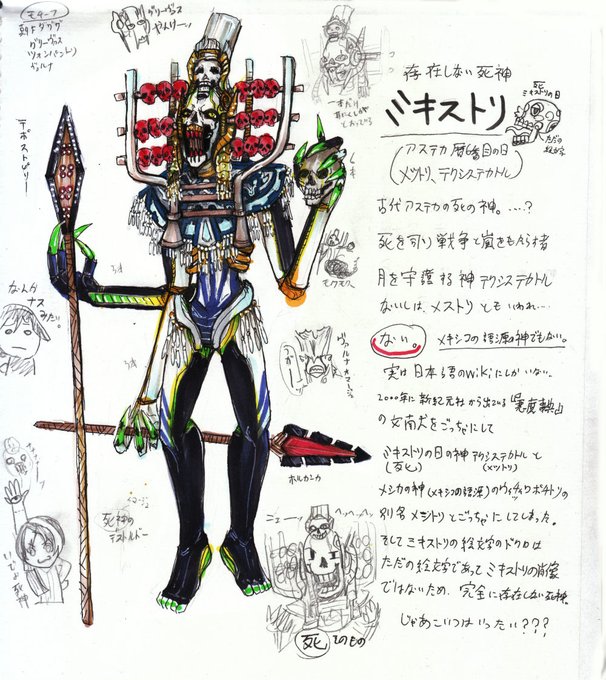 モチーフ
グリーヴァス
ツォンパントリ
グリーヴァス
やんけー!
存在しない死神
ミキストリ
死
ミキストリの日
ただの
絵文字
(アステカ暦6番目の日
メツトリ、テクシステカトル)
古代アステカの死の神。…?
死を司り戦争と嵐をもたらす者
月を守護する神テクシステカトル
ないしは、メストリともいわれ…
ない。
メキシコの語源の神でもない。
実は日本語のwikiにしかいない…
2000年に新紀元社から出ている『悪魔事典』
の文献をごっちゃにして
ミキストリの日の神テクシステカトルと
(死) (メツトリ)
メシカの神(メキシコの語源)のウィツィロポチトリの
別名メシトリとごっちゃにしてしまった。
そしてミキストリの絵文字のドクロは
ただの絵文字であってミキストリの肖像
ではないため、完全に存在しない死神。
じゃあこいつはいったい???
テポストピリー
なんか
ナス
みたい。
モクモクへ
ホルカンカ
死神の
いでよ死神
ニュー
へへへへ
死
そのもの